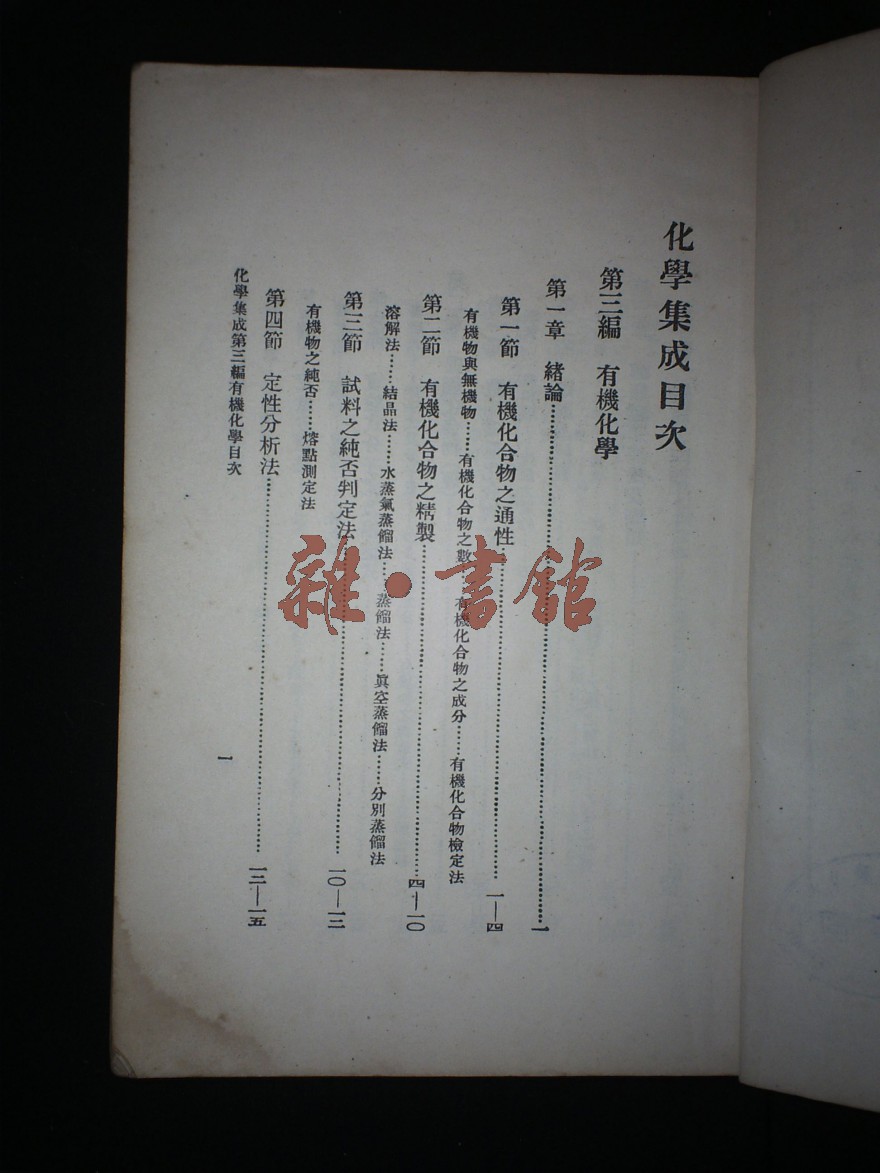 化學集成目次
第三編　有機化學
第一章　緒論……一
第一節　有機化合物之通性……一—四
有機物與無機物……有機化合物之數……有機化合物之成分……有機化合物檢定法
第二節　有機化合物之精製……四—一〇
溶解法……結晶法……水蒸氣蒸餾法……蒸餾法……眞空蒸餾法……分別蒸餾法
第三節　試料之純否判定法……一〇—一三
有機物之純否……熔點測定法
第四節　定性分析法……一三—一五
化學集成第三編有機化學目次
一
雜·書館